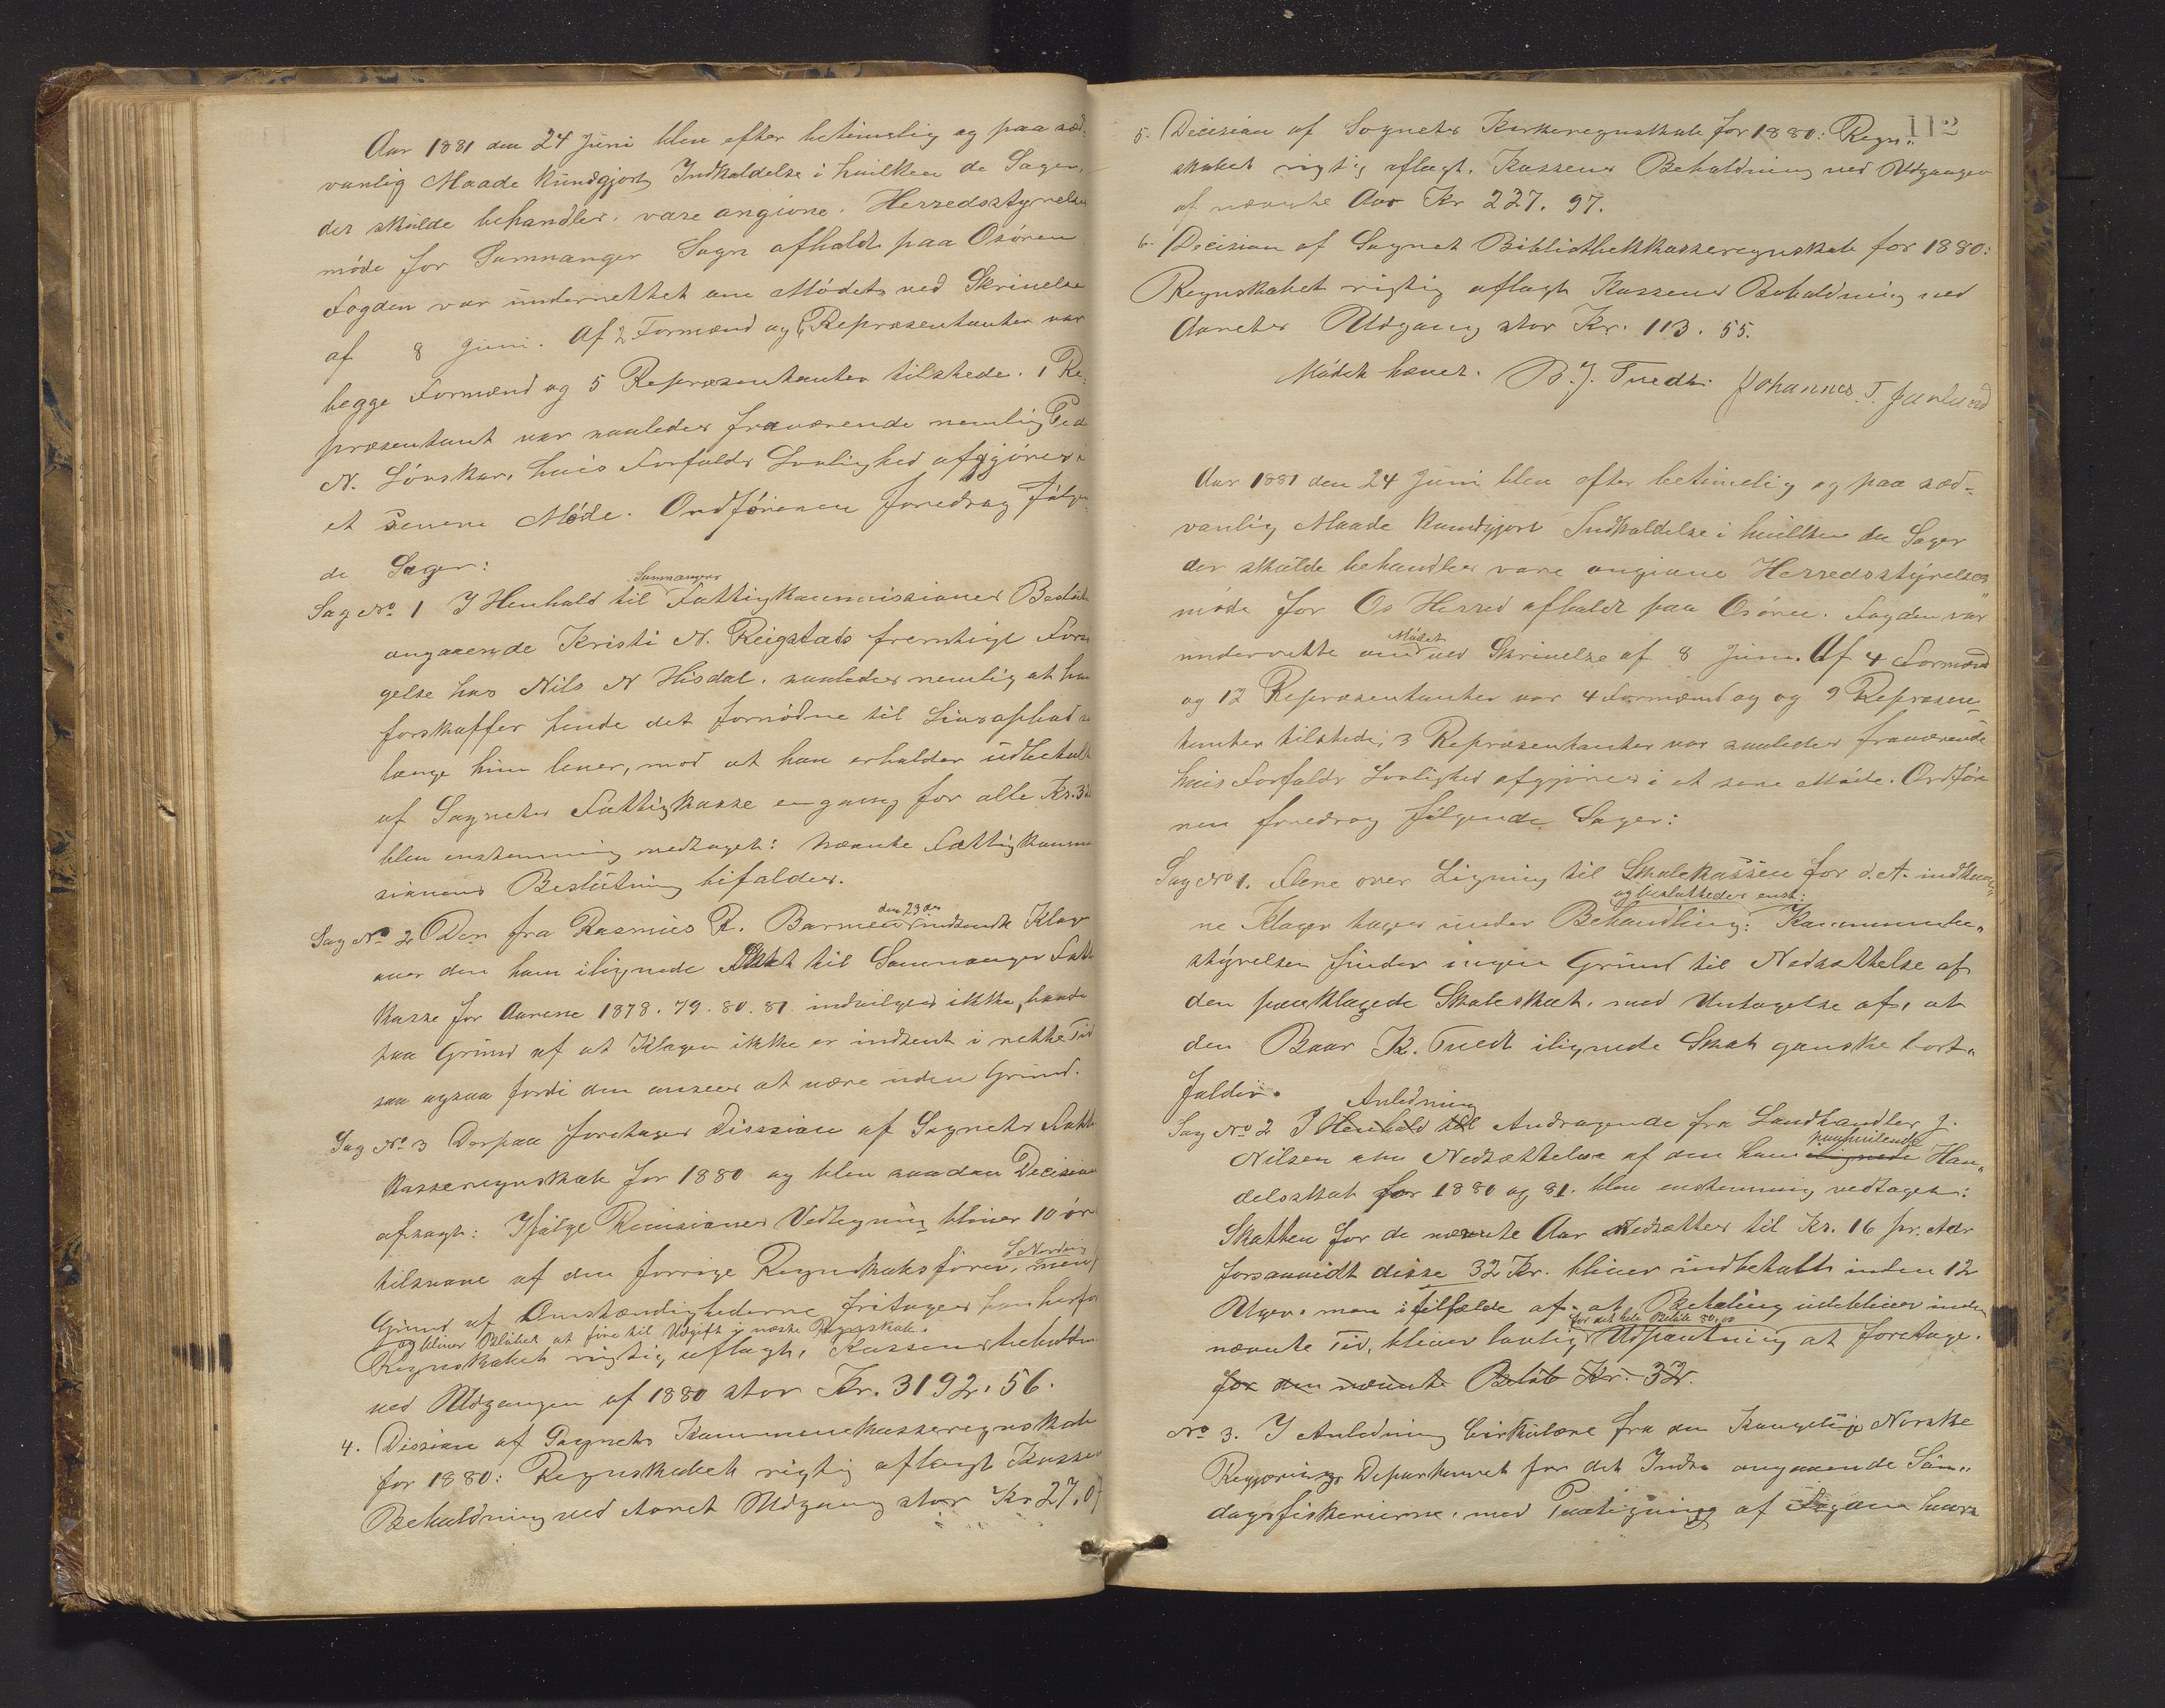 Aar 1881 den 24 Juni blev efter betimelig og paa sæd-
vanlig Maade kundgjort Indkaldelse i hvilken de Sager,
der skulde behandles, vare angivne. Herredsstyrelses
møde for Samnanger Sogn afholdt paa Osøren
Fogden var underrettet om Mødet ved Skrivelse
af 8 Juni. Af 2 Formænd og 6 Repræsentanter var
begge Formænd og 5 Repræsentanter tilstede. 1 Re-
præsentant var saaledes fraværende nemlig Ped
N. Lønskar, hvis Forfalds Lovlighed afgjøres i
et senere Møde. Ordføreren foredrog følgen
de Sager:
Samnangers
Sag No 1 I Henhold til Fattigkommissiones Beslut
angaaende Kristi N. Reigstads fremtige Forsør
gelse hos Nils N Hisdal, saaledes nemlig at han
forskaffer hende det fornødne til Livsophold saa
længe hun lever, mod at han erholder udbetalt
af Sognets Fattigkasse engang for alle Kr. 32
blev enstemmig vedtaget: Nævnte Fattigkomm
sionens Beslutning bifaldes.
den 23de
Sag No 2 Den fra Rasmus R. Barmen indsendte Klage
over den ham ilignede Skat til Samnanger Fatt
kasse for Aarene 1878. 79. 80. 81 indvilges ikke, baade
paa Grund af at Klagen ikke er indsent i rette Tid
saa ogsaa fordi den ansees at være uden Grund.
Sag No 3 Derpaa foretages Dission af Sognets Fatt
kasseregnskab for 1880 og blev saadan Decision
afsagt: Ifølge Revisiones Vedtegning bliver 10 øre
tilsvare af den forrige Regnskabsfører, L Nordvig men
Grund af Omstændighederne fritages han herfor
og bliver Beløbet at føre til Udgift i næste Regnskab.
Regnskabet rigtig aflagt, Kassens beholdn
ved Udgangen af 1880 stor Kr. 3192. 56.
4. Dission af Sognets Kommunekasseregnskab
for 1880: Regnskabet rigtig aflagt Kassen
Beholdning ved Aaret Udgang stor Kr 27.0
112
5. Decision af Sognets Kirkeregnskab for 1880: Regn„
skabet rigtig aflagt. Kassens Beholdning ved Udgangen
af nævnte Aar Kr 227. 97.
6. Decision af Sognet Bibliothekkasseregnskab for 1880:
Regnskabet rigtig aflagt Kassens Beholdning ved
Aarets Udgang stor Kr. 113. 55.
Mødet hævet. B. J. Tvedt. Johannes T.
Aar 1881 den 24 Juni blev efter betimelig og paa sæd-
vanlig Maade kundgjort Indkaldelse i hvilken de Sager
der skulde behandles vare angivne Herredsstyrelses
møde for Os Herred afholdt paa Osøren. Fogden var
underrette om Mødet ved Skrivelse af 8 Juni. Af 4 Formænd
og 12 Repræsentanter var 4 Formænd og og 9 Repræsen-
tanter tilstede; 3 Repræsentanter var saaledes fraværende
hvis Forfalds Lovlighed afgjøres i et sene Møde. Ordføre
ren foredrog følgende Sager:
Sag No 1. Flere over Ligning til Skolekassen for d. A. indkom„
og besluttedes enst:
ne Klager toges under Behandling: Kommunebe„
styrelsen finder ingen Grund til Nedsættelse af
den paaklagede Skoleskat, med Untagelse af, at
den Baar K. Tvedt ilignede Skat ganske bort„
falder.
Anledning
Sag No 2 I Henhold til Andragende fra Landhandler J.
Nilsen om Nedsættelse af den ham ilignede paahvilende Han„
delsskat for 1880 og 81. blev enstemmig vedtaget:
Skatten for de nævnte Aar nedsættes til Kr. 16 pr. Aar
forsaavidt disse 32 Kr. bliver indbetalt inden 12
Uger, men i tilfælde af, at Betaling udebliver inden
for det hele Beløb 80,00
nævnte Tid, bliver lovlig Udpantning at foretage.
for den nævnte Beløb Kr. 32.
No 3. I Anledning Cirkulære fra den Kongelige Norske
Regjerings Departement for det Indre angaaende Søn„
dagsfiskerierne, med Paategning af Fogden hvors